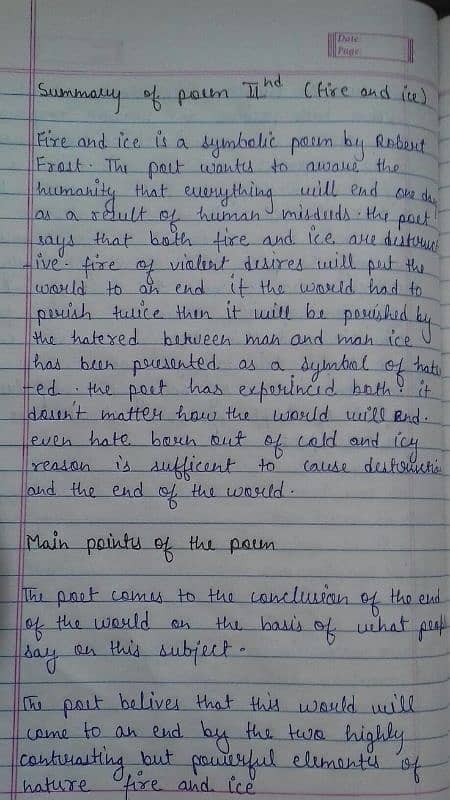 Date
Page
Summary of poem IInd (fire and ice)
Fire and ice is a symbolic poem by Robert
Frost. The poet wants to aware the
humanity that everything will end one day
as a result of human misdeeds. the poet
says that both fire and ice are destruct
ive. fire of violent desires will put the
world to an end if the world had to
perish twice then it will be perished by
the hatered between man and man ice
has been presented as a symbol of hatr
ed. the poet has experinced both. it
doesn't matter how the world will End.
even hate born out of cold and icy
reason is sufficent to cause destructio
and the end of the world.
Main points of the poem
The poet comes to the conclusion of the end
of the world on the basis of what peop
say on this subject.
The poet belives that this world will
come to an end by the two highly
contrasting but powerful elements of
nature fire and ice